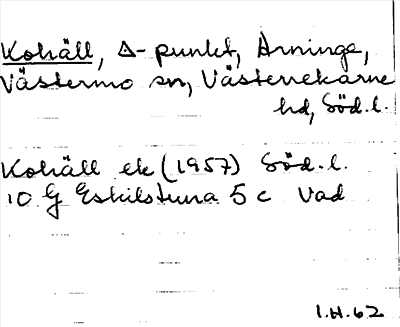 Kohäll, Δ-punkt, Arninge,
Västermo sn, Västerrekarne
hd, Söd.l.
Kohäll ek (1957) Söd.l.
10 G Eskilstuna 5 c Vad
1.H.62